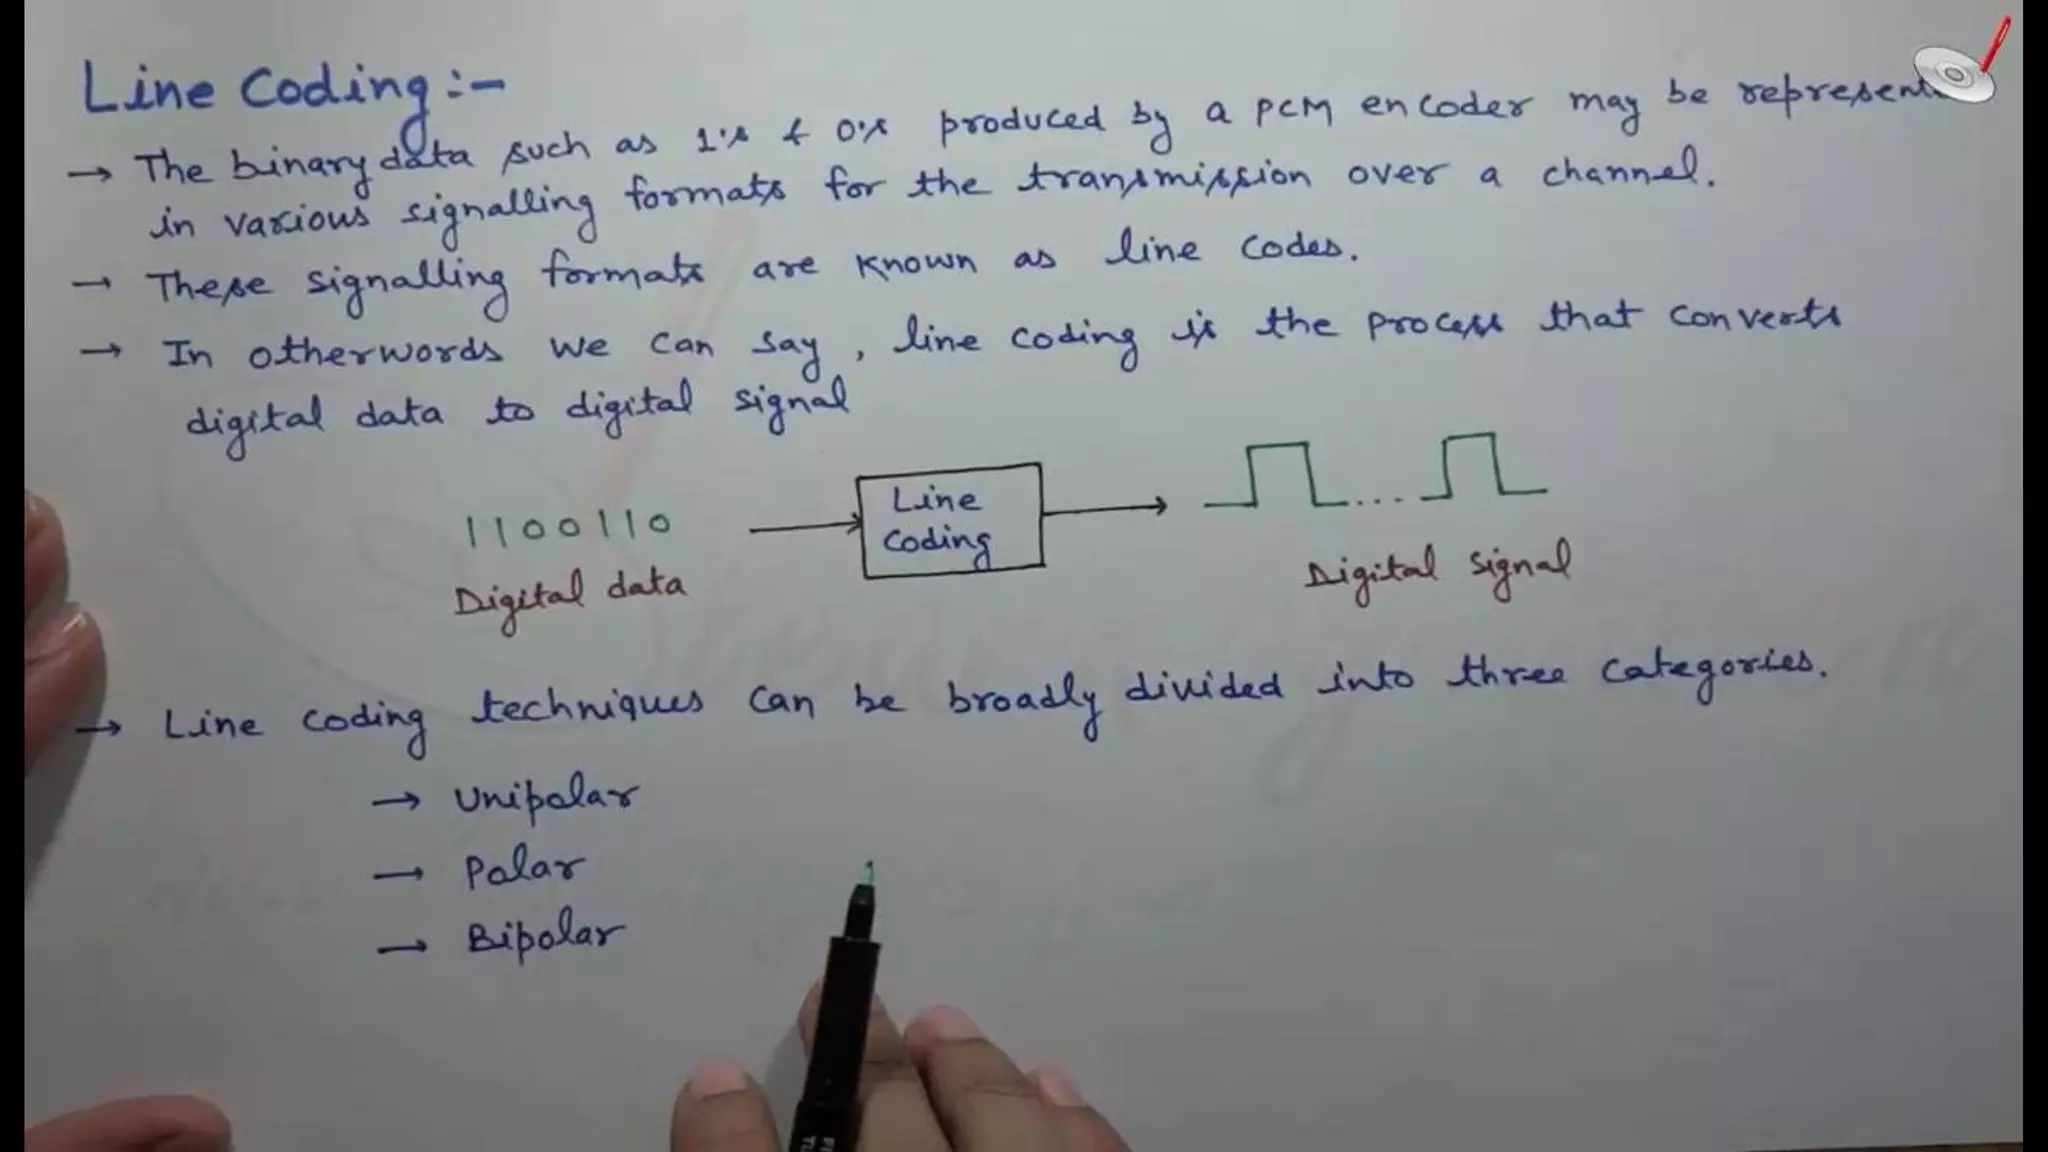 Line Coding:-
→ The binary data such as 1's & 0's produced by a PCM encoder may be
in various signalling formats for the transmission over a channel.
→ These signalling formats are known as line codes.
→ In otherwords we can say, line coding is the process that converts
digital data to digital signal
1100110
Digital data
Line
Coding
Digital signal
→ Line coding techniques can be broadly divided into three categories.
→ Unipolar
→ Polar
→ Bipolar